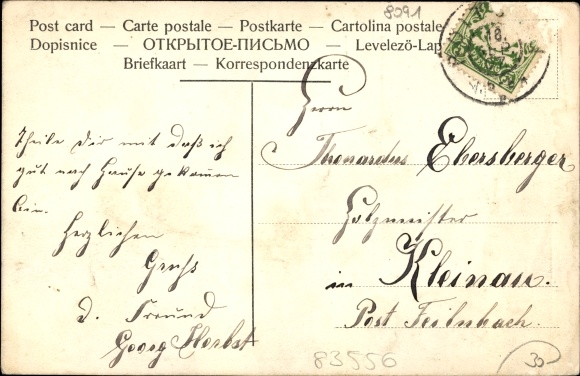 8091
Post card — Carte postale — Postkarte — Cartolina postale
Dopisnice — ОТКРЫТОЕ-ПИСЬМО — Levelezö-Lap
Briefkaart — Korrespondenzkarte
Theile Dir mit daß ich
gut nach Hause gekomen
bin.
Herzlichen
Gruß
d. Freund
Georg Herbst
Herrn
Ebersberger
Holzmeister
in Kleinau.
Post Feilnbach.
83556
30